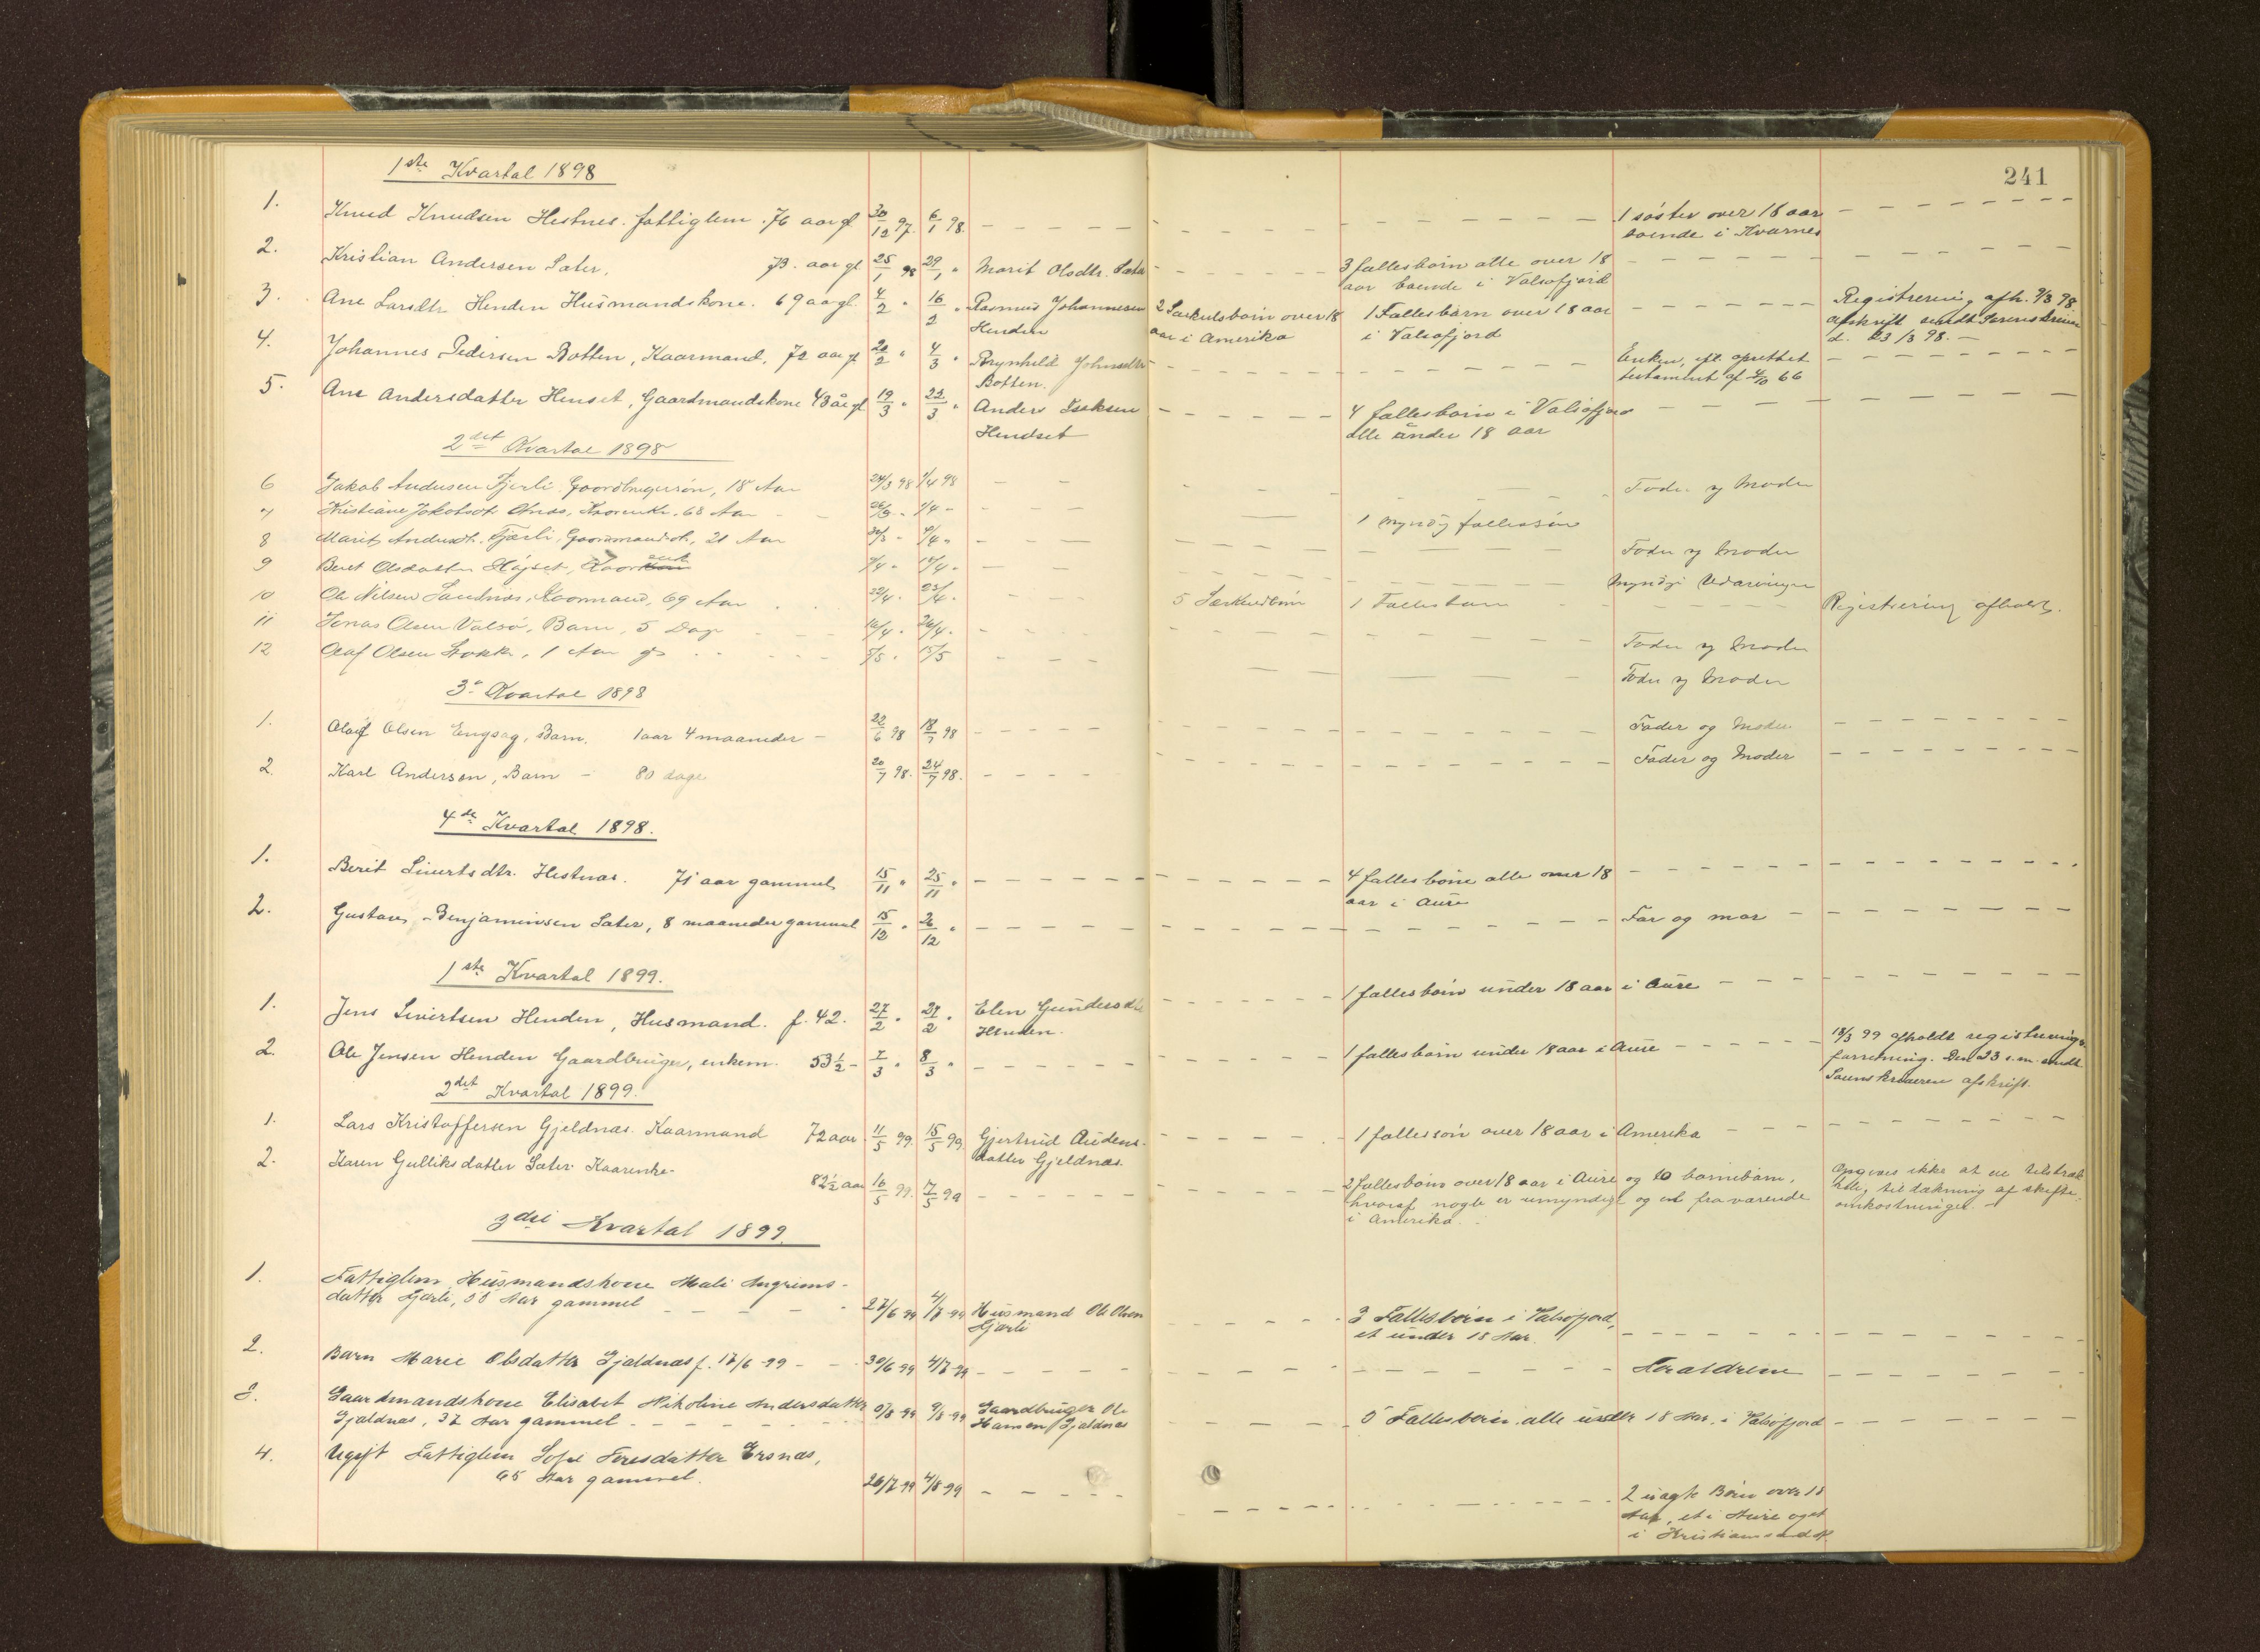 241
1ste Kvartal 1898
1. Knud Knudsen Hestnes. fattiglem. 76 aar gl 30/12 97. 6/1 98. 1 søster over 18 aar
boende i Kvernes
2. Kristian Andersen Sæter, 73. aar gl. 25/1 98 29/1 " Marit Olsdtr. Sæter 3 fællesbørn alle over 18
aar boende i Valsøfjord
3. Ane Larsdtr Henden Husmandskone. 69 aar gl. 4/2 " 16/2 " Rasmus Johannesen 2 Særkulsbørn over 18 1 Fællesbarn over 18 aar Registrering afh. 9/3 98
Henden aar i Amerika i Valsøfjord afskrift sendt Sorenskriver
d. 23/3 98. -
4. Johannes Pedersen Botten, Kaarmand, 72 aar gl 20/2 " 4/3 " Brynhild Johnsdtr Enken, efl. oprettet
Botten. testament af 4/10 66
5. Ane Andersdatter Henset, Gaardmandskone 43 år gl 19/3 " 22/3 " Anders Isaksen 4 fællesbørn i Valsøfjord
Hendset alle under 18 aar
2det Kvartal 1898
6 Jakob Andersen Fjerli Gaardbrugersøn, 18 Aar 24/3 98 1/4 98 Fader og Moder
7 Kristiane Jakobsdr Aknæs, Kaarenke. 68 Aar 26/3 " 1/4 " 1 myndig fællessøn
8 Marit Andersdt. Fjærli, Gaardmandsdt., 21 Aar 30/3 " 4/4 " Fader og Moder
9 Beret Olsdatter Højset, Kaarenke 9/4 " 14/4 " Myndige Udarvinger
10 Ole Nilsen Sandnæs, Kaarmand, 69 Aar 22/4 " 23/4 " 5 Særkuldbørn 1 Fællesbarn Registrering afholdt.
11 Jonas Olsen Valsø, Barn, 5 Dage 16/4 " 26/4 " Fader og Moder
12 Olaf Olsen Stokke, 1 Aar gl 5/5 " 15/5 Fader og Moder
3e Kvartal 1898
1. Olaf Olsen Engsag, Barn, 1 aar 4 maaneder - 22/6 98 18/7 98 Fader og Moder
2. Karl Andersen, Barn - 80 dage 20/7 98. 24/7 98. Fader og Moder
4de Kvartal 1898.
1. Berit Sivertsdtr. Hestnæs. 71 aar gammel 15/11 " 25/11 " 4 fællesbørn alle over 18
aar i Aure
2. Gustav Benjaminsen Sæter, 8 maaneder gammel 15/12 " 26/12 " Far og mor
1ste Kvartal 1899.
1. Jens Sivertsen Henden, Husmand. f. 42. 27/2 " 29/2 " Elen Gundersdtr 1 fællesbørn under 18 aar i Aure
Henden.
2. Ole Jensen Henden Gaardbruger, enkem. 53 1/2 - 7/3 " 8/3 " 1 fællesbørn under 18 aar i Aure 18/3 99 afholdt registrerings-
forretning. Den 23 s.m. sendt
Sorenskriveren afskrift.
2det Kvartal 1899.
1. Lars Kristoffersen Gjeldnæs. Kaarmand 72 aar 11/5 99. 15/5 99. Gjertrud Audens- 1 fællessøn over 18 aar i Amerika
datter Gjeldnæs.
2. Karen Gulliksdatter Sæter Kaarenke - 82 1/2 aar 16/5 99. 17/5 99 2 fællesbørn over 18 aar i Aure og 10 børnebørn, Opgives ikke at ee tilstræk-
hvoraf nogle er umyndige og en fraværende kelig til dækning af skifte-
i Amerika. omkostninger. -
3die Kvartal 1899.
1. Fattiglem, Husmandskone Mali Angrims-
datter Fjærli, 58 Aar gammel 27/6-99 4/7-99 Husmand Ole Olsen 3 Fællesbørn i Valsøfjord,
Fjærli et under 18 Aar.
2. Barn Marie Olsdatter Gjældnæs f. 17/6-99 - 30/6 99 4/7-99 Forældrene
3. Gaardmandskone Elisabet Nikoline Andersdatter 5/8-99 9/8-99 Gaardbruger Ole 5 Fællesbørn alle under 18 Aar, i Valsøfjord
Gjældnæs, 37 Aar gammel Hansen Gjældnæs
4. Ugift Fattiglem Sofie Toresdatter Ersnæs,
65 Aar gammel. 26/7 99 4/8-99 2 uægte Børn over 18
Aar, et i Aure og et
i Kristianssund N.